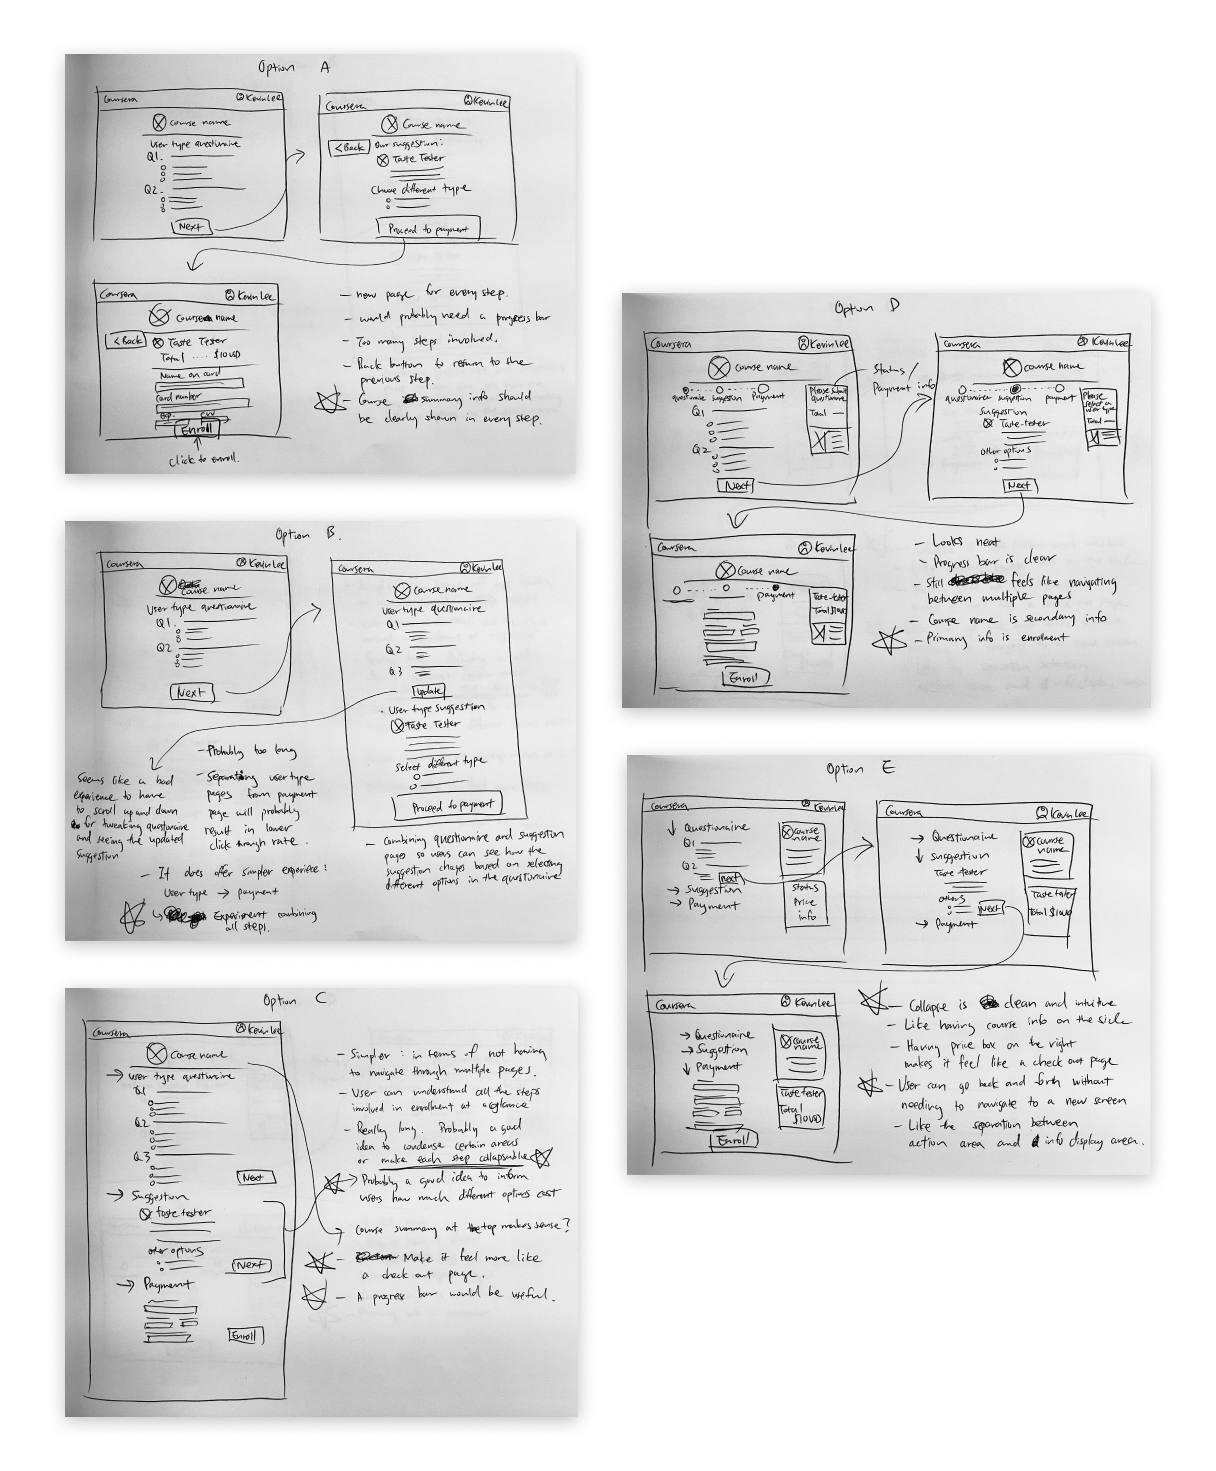 Option A
Coursera
Kevin Lee
Course name
User type questionaire
Q1.
Q2.
Next
Coursera
Kevin Lee
Course name
< Back
Our suggestion:
Taste Tester
Choose different type
Proceed to payment
Coursera
Kevin Lee
Course name
< Back
Taste Tester
Total .... $10 USD
Name on card
Card number
Exp. CVV
Enroll
Click to enroll.
- new page for every step.
- would probably need a progress bar
- Too many steps involved.
- Back button to return to the
previous step.
- Course summary info should
be clearly shown in every step.
Option B.
Coursera
Kevin Lee
Course name
User type questionaire
Q1.
Q2
Next
Coursera
Kevin Lee
Course name
User type questionaire
Q1
Q2
Q3
Update
User type suggestion
Taste Tester
Select different type
Proceed to payment
Seems like a bad
experience to have
to scroll up and down
for tweaking questionaire
and seeing the updated
suggestion
- Probably too long
- Separating user type
pages from payment
page will probably
result in lower
click through rate.
- It does offer simpler experience:
User type → payment
↳ Experiment combining
all steps.
- Combining questionaire and suggestion
pages so users can see how the
suggestion changes based on selecting
different options in the questionaire
Option C
Coursera
Kevin Lee
Course name
→ User type questionaire
Q1
Q2
Q3
Next
→ Suggestion
taste tester
other options
Next
→ Payment
Enroll
- Simpler : in terms of not having
to navigate through multiple pages.
- User can understand all the steps
involved in enrolment at a glance
- Really long. Probably a good
idea to condense certain areas
or make each step collapsable
Probably a good idea to inform
users how much different options cost
Course summary at the top makes sense?
- Make it feel more like
a check out page.
- A progress bar would be useful.
Option D
Coursera
Kevin Lee
Course name
questionaire suggestion Payment
Q1
Q2
Next
Please submit
questionaire
Total —
Status/
Payment info
Coursera
Kevin Lee
Course name
questionaire suggestion payment
Suggestion
Taste-tester
Other options
Next
Please
select a
user type
Total —
Coursera
Kevin Lee
Course name
payment
Taste-tester
Total $10USD
Enroll
- Looks neat
- Progress bar is clear
- Still feels like navigating
between multiple pages
- Course name is secondary info
- Primary info is enrolment
Option E
Coursera
Kevin Lee
↓ Questionaire
Q1
Q2
next
→ Suggestion
→ Payment
Course
name
Status
Price
info
Coursera
Kevin Lee
→ Questionaire
↓ Suggestion
Taste tester
others
Next
→ Payment
Course
name
Taste tester
Total $10USD
Coursera
Kevin Lee
→ Questionaire
→ Suggestion
↓ Payment
Enroll
Course
name
Taste tester
Total
$10USD
- Collapse is clean and intuitive
- Like having course info on the side
- Having price box on the right
makes it feel like a check out page
- User can go back and forth without
needing to navigate to a new screen
- Like the separation between
action area and info display area.